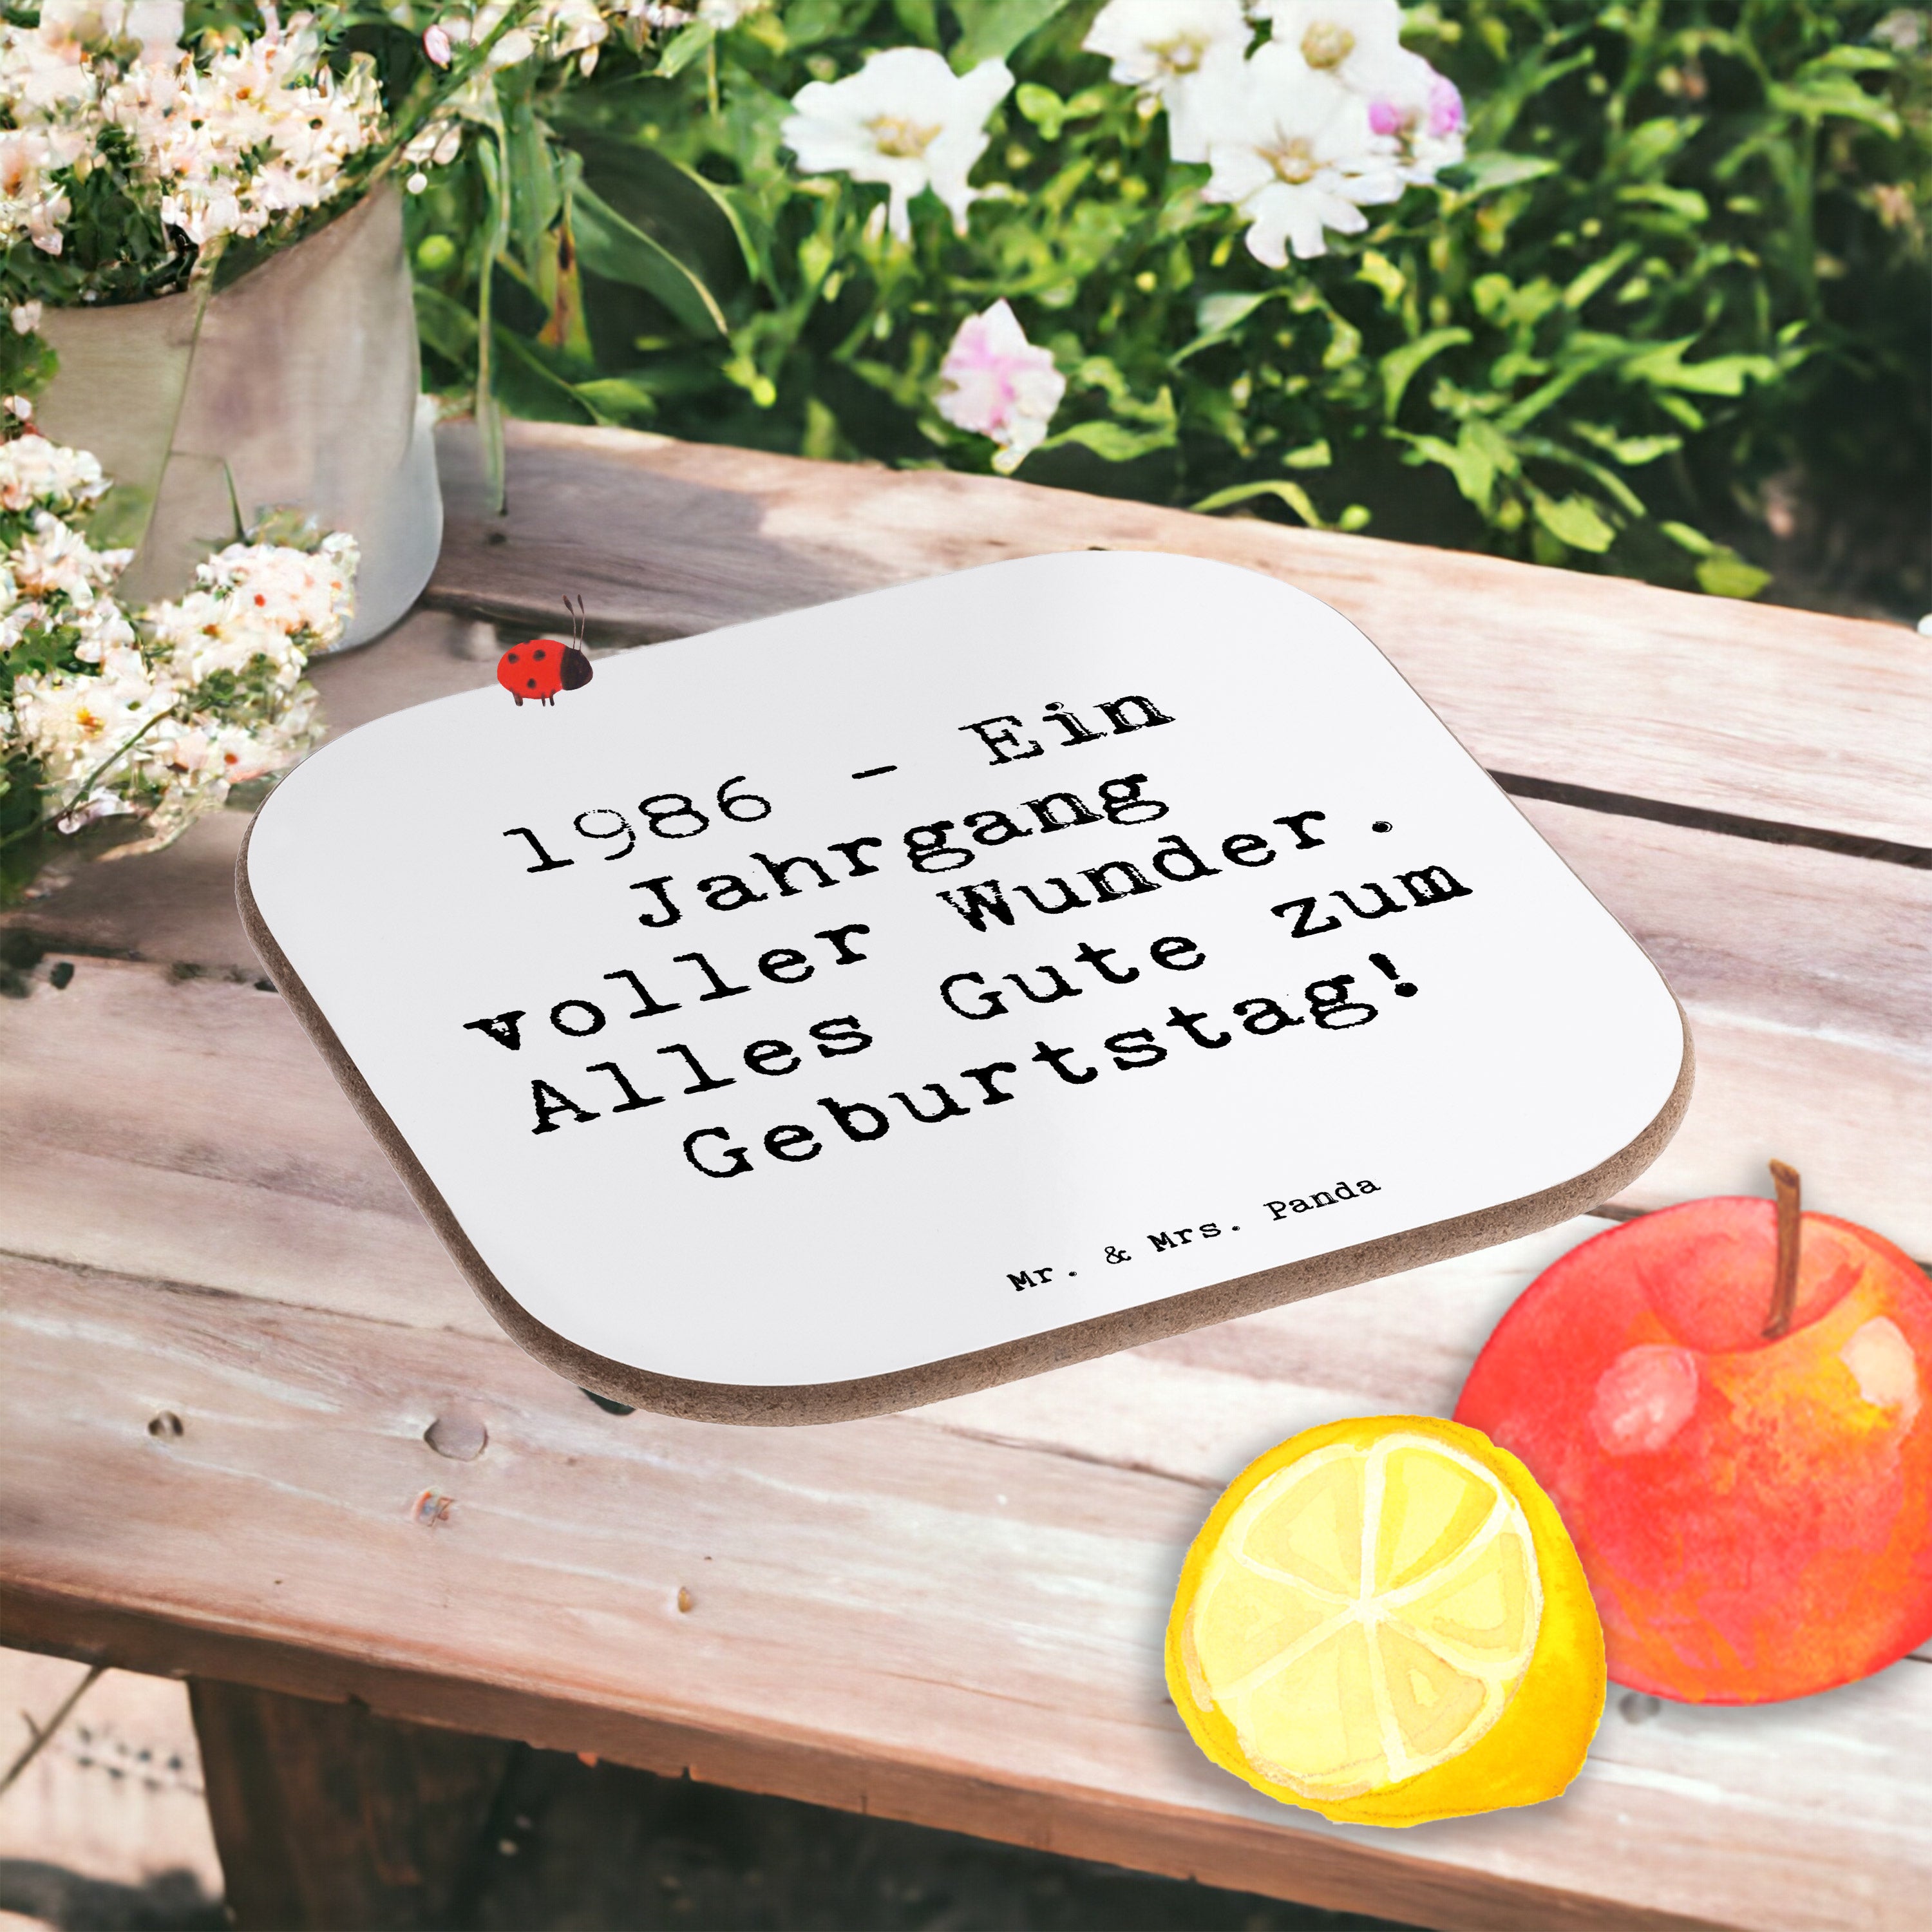 1986 - Ein
Jahrgang
voller Wunder.
Alles Gute zum
Geburtstag!
Mr. & Mrs. Panda